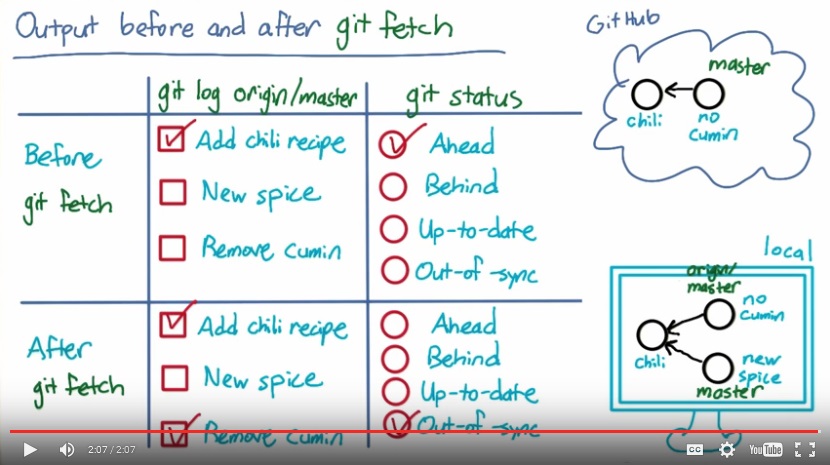 Output before and after git fetch
git log origin/master
git status
Before
git fetch
Add chili recipe
New spice
Remove cumin
Ahead
Behind
Up-to-date
Out-of-sync
After
git fetch
Add chili recipe
New spice
Remove cumin
Ahead
Behind
Up-to-date
Out-of-sync
GitHub
master
chili
no
cumin
local
origin/
master
no
cumin
chili
new
spice
master
2:07 / 2:07
CC
YouTube